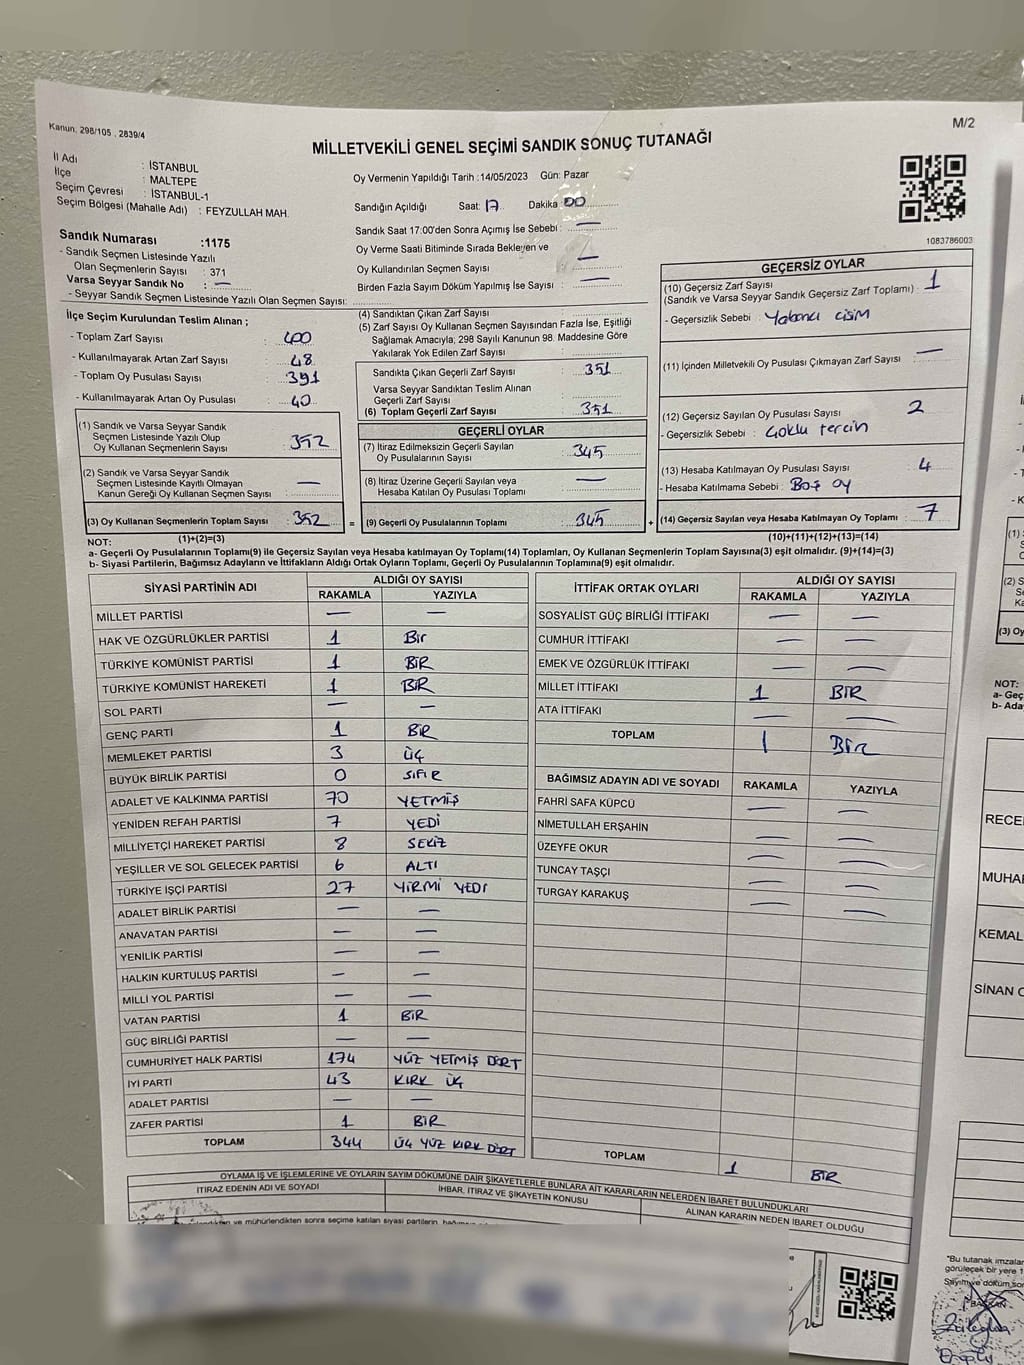 Kanun. 298/105 , 2839/4
M/2
MİLLETVEKİLİ GENEL SEÇİMİ SANDIK SONUÇ TUTANAĞI
İl Adı : İSTANBUL
İlçe : MALTEPE
Seçim Çevresi : İSTANBUL-1
Seçim Bölgesi (Mahalle Adı) : FEYZULLAH MAH.
Oy Vermenin Yapıldığı Tarih :14/05/2023 Gün: Pazar
Sandığın Açıldığı Saat: 17 Dakika 00
Sandık Saat 17:00'den Sonra Açımış İse Sebebi : —
Oy Verme Saati Bitiminde Sırada Bekleyen ve
Oy Kullandırılan Seçmen Sayısı —
Birden Fazla Sayım Döküm Yapılmış İse Sayısı : —
1083786003
Sandık Numarası :1175
- Sandık Seçmen Listesinde Yazılı
Olan Seçmenlerin Sayısı : 371
Varsa Seyyar Sandık No : —
- Seyyar Sandık Seçmen Listesinde Yazılı Olan Seçmen Sayısı:
İlçe Seçim Kurulundan Teslim Alınan ;
- Toplam Zarf Sayısı : 400
- Kullanılmayarak Artan Zarf Sayısı : 48
- Toplam Oy Pusulası Sayısı : 391
- Kullanılmayarak Artan Oy Pusulası : 40
(1) Sandık ve Varsa Seyyar Sandık
Seçmen Listesinde Yazılı Olup
Oy Kullanan Seçmenlerin Sayısı : 352
(2) Sandık ve Varsa Seyyar Sandık
Seçmen Listesinde Kayıtlı Olmayan
Kanun Gereği Oy Kullanan Seçmen Sayısı : —
(3) Oy Kullanan Seçmenlerin Toplam Sayısı : 352
(1)+(2)=(3)
(4) Sandıktan Çıkan Zarf Sayısı :
(5) Zarf Sayısı Oy Kullanan Seçmen Sayısından Fazla İse, Eşitliği
Sağlamak Amacıyla; 298 Sayılı Kanunun 98. Maddesine Göre
Yakılarak Yok Edilen Zarf Sayısı :
Sandıkta Çıkan Geçerli Zarf Sayısı : 351
Varsa Seyyar Sandıktan Teslim Alınan
Geçerli Zarf Sayısı :
(6) Toplam Geçerli Zarf Sayısı : 351
GEÇERLİ OYLAR
(7) İtiraz Edilmeksizin Geçerli Sayılan
Oy Pusulalarının Sayısı : 345
(8) İtiraz Üzerine Geçerli Sayılan veya
Hesaba Katılan Oy Pusulası Toplamı : —
= (9) Geçerli Oy Pusulalarının Toplamı : 345 +
GEÇERSİZ OYLAR
(10) Geçersiz Zarf Sayısı
(Sandık ve Varsa Seyyar Sandık Geçersiz Zarf Toplamı) : 1
- Geçersizlik Sebebi : Yabancı cisim
(11) İçinden Milletvekili Oy Pusulası Çıkmayan Zarf Sayısı : —
(12) Geçersiz Sayılan Oy Pusulası Sayısı : 2
- Geçersizlik Sebebi : Çoklu tercih
(13) Hesaba Katılmayan Oy Pusulası Sayısı : 4
- Hesaba Katılmama Sebebi : Boş oy
(14) Geçersiz Sayılan veya Hesaba Katılmayan Oy Toplamı : 7
(10)+(11)+(12)+(13)=(14)
NOT:
a- Geçerli Oy Pusulalarının Toplamı(9) ile Geçersiz Sayılan veya Hesaba katılmayan Oy Toplamı(14) Toplamları, Oy Kullanan Seçmenlerin Toplam Sayısına(3) eşit olmalıdır. (9)+(14)=(3)
b- Siyasi Partilerin, Bağımsız Adayların ve İttifakların Aldığı Ortak Oyların Toplamı, Geçerli Oy Pusulalarının Toplamına(9) eşit olmalıdır.
SİYASİ PARTİNİN ADI ALDIĞI OY SAYISI
RAKAMLA YAZIYLA
MİLLET PARTİSİ — —
HAK VE ÖZGÜRLÜKLER PARTİSİ 1 Bir
TÜRKİYE KOMÜNİST PARTİSİ 1 BİR
TÜRKİYE KOMÜNİST HAREKETİ 1 BİR
SOL PARTİ — —
GENÇ PARTİ 1 BİR
MEMLEKET PARTİSİ 3 ÜÇ
BÜYÜK BİRLİK PARTİSİ 0 SIFIR
ADALET VE KALKINMA PARTİSİ 70 YETMİŞ
YENİDEN REFAH PARTİSİ 7 YEDİ
MİLLİYETÇİ HAREKET PARTİSİ 8 SEKİZ
YEŞİLLER VE SOL GELECEK PARTİSİ 6 ALTI
TÜRKİYE İŞÇİ PARTİSİ 27 YİRMİ YEDİ
ADALET BİRLİK PARTİSİ — —
ANAVATAN PARTİSİ — —
YENİLİK PARTİSİ — —
HALKIN KURTULUŞ PARTİSİ — —
MİLLİ YOL PARTİSİ — —
VATAN PARTİSİ 1 BİR
GÜÇ BİRLİĞİ PARTİSİ — —
CUMHURİYET HALK PARTİSİ 174 YÜZ YETMİŞ DÖRT
İYİ PARTİ 43 KIRK ÜÇ
ADALET PARTİSİ — —
ZAFER PARTİSİ 1 BİR
TOPLAM 344 ÜÇ YÜZ KIRK DÖRT
İTTİFAK ORTAK OYLARI ALDIĞI OY SAYISI
RAKAMLA YAZIYLA
SOSYALİST GÜÇ BİRLİĞİ İTTİFAKI — —
CUMHUR İTTİFAKI — —
EMEK VE ÖZGÜRLÜK İTTİFAKI — —
MİLLET İTTİFAKI 1 BİR
ATA İTTİFAKI — —
TOPLAM 1 BİR
BAĞIMSIZ ADAYIN ADI VE SOYADI RAKAMLA YAZIYLA
FAHRİ SAFA KÜPCÜ — —
NİMETULLAH ERŞAHİN — —
ÜZEYFE OKUR — —
TUNCAY TAŞÇI — —
TURGAY KARAKUŞ — —
TOPLAM 1 BİR
OYLAMA İŞ VE İŞLEMLERİNE VE OYLARIN SAYIM DÖKÜMÜNE DAİR ŞİKAYETLERLE BUNLARA AİT KARARLARIN NELERDEN İBARET BULUNDUKLARI
İTİRAZ EDENİN ADI VE SOYADI İHBAR, İTİRAZ VE ŞİKAYETİN KONUSU ALINAN KARARIN NEDEN İBARET OLDUĞU
ve mühürlendikten sonra seçime katılan siyasi partilerin,
(1)
(2) S
(3) Oy
NOT:
a- Geç
b- Ada
RECE
MUHA
KEMAL
SİNAN
"Bu tutanak imzalar
görülecek bir yere 1
Sayım ve döküm son
BAŞKAN